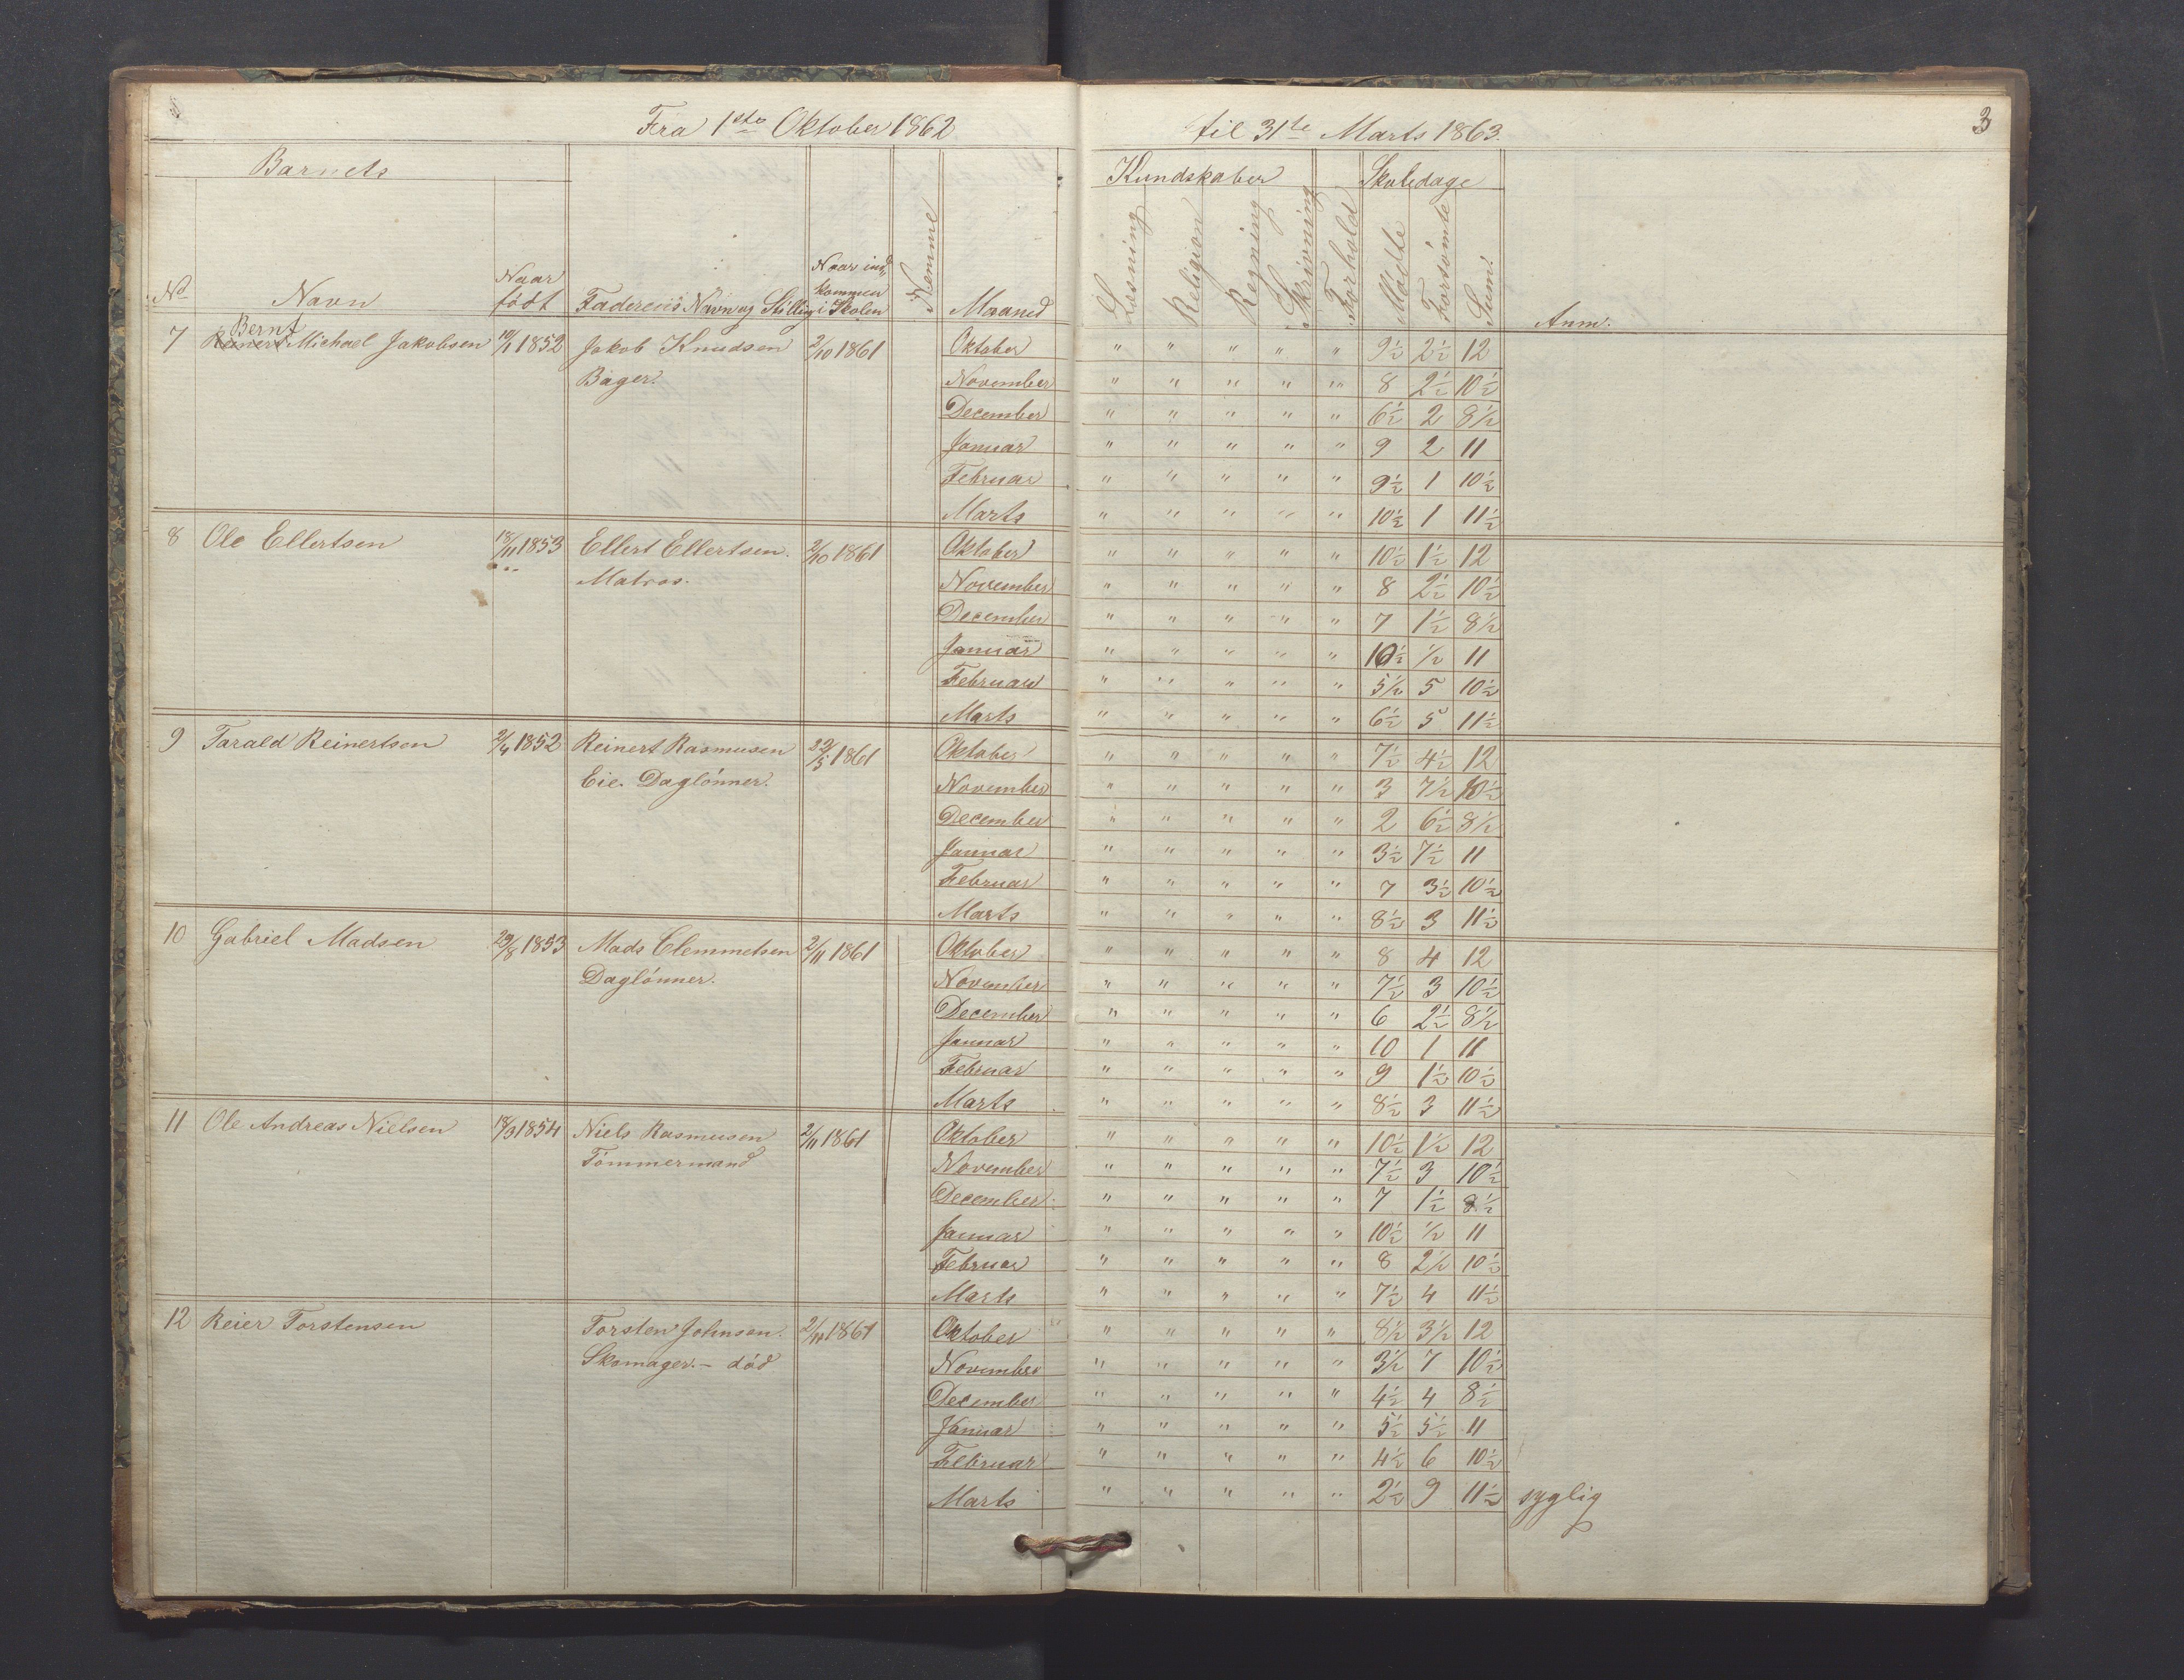 Fra 1ste Oktober 1862 til 31te Marts 1863. 3
Barnets Kundskaber Skoledage
No Navn Naar født Faderens Navn og Stilling Naar ind kommen i Skolen Nemme Maaned Læsning Religion Regning Skrivning Forhold Mødte Forsømte Sum. Anm.
Bernt
7 Reinert Michael Jakobsen 10/1 1852 Jakob Knudsen 2/10 1861 Oktober " " " " " 9½ 2½ 12
Bager. November " " " " " 8 2½ 10½
December " " " " " 6½ 2 8½
Januar " " " " " 9 2 11
Februar " " " " " 9½ 1 10½
Marts " " " " " 10½ 1 11½
8 Ole Ellertsen 18/11 1853 Ellert Ellertsen. 2/10 1861 Oktober " " " " " 10½ 1½ 12
Matros. November " " " " " 8 2½ 10½
December " " " " " 7 1½ 8½
Januar " " " " " 10½ ½ 11
Februar " " " " " 5½ 5 10½
Marts " " " " " 6½ 5 11½
9 Tarald Reinertsen 2/4 1852 Reinert Rasmusen 22/5 1861 Oktober " " " " " 7½ 4½ 12
Eie. Daglønner. November " " " " " 3 7½ 10½
December " " " " " 2 6½ 8½
Januar " " " " " 3½ 7½ 11
Februar " " " " " 7 3½ 10½
Marts " " " " " 8½ 3 11½
10 Gabriel Madsen 29/8 1853 Mads Clemmetsen 2/11 1861 Oktober " " " " " 8 4 12
Daglønner. November " " " " " 7½ 3 10½
December " " " " " 6 2½ 8½
Januar " " " " " 10 1 11
Februar " " " " " 9 1½ 10½
Marts " " " " " 8½ 3 11½
11 Ole Andreas Nielsen 18/9 1854 Niels Rasmusen 2/11 1861 Oktober " " " " " 10½ 1½ 12
Tømmermand November " " " " " 7½ 3 10½
December " " " " " 7 1½ 8½
Januar " " " " " 10½ ½ 11
Februar " " " " " 8 2½ 10½
Marts " " " " " 7½ 4 11½
12 Reier Torstensen Torsten Johnsen. 2/11 1861 Oktober " " " " " 8½ 3½ 12
Skomager. - død November " " " " " 3½ 7 10½
December " " " " " 4½ 4 8½
Januar " " " " " 5½ 5½ 11
Februar " " " " " 4½ 6 10½
Marts " " " " " 2½ 9 11½ syglig